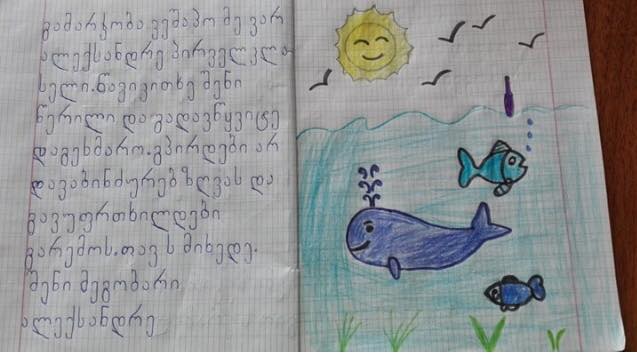 გამარჯობა ვეშაპო მე ვარ
ალექსანდრე პირველკლა
სელი.წავიკითხე შენი
წერილი და გადავწყვიტე
დაგეხმარო.გპირდები არ
დავაბინძურებ ზღვას და
გავუფრთხილდები
გარემოს.თავ ს მიხედე.
შენი მეგობარი
ალექსანდრე